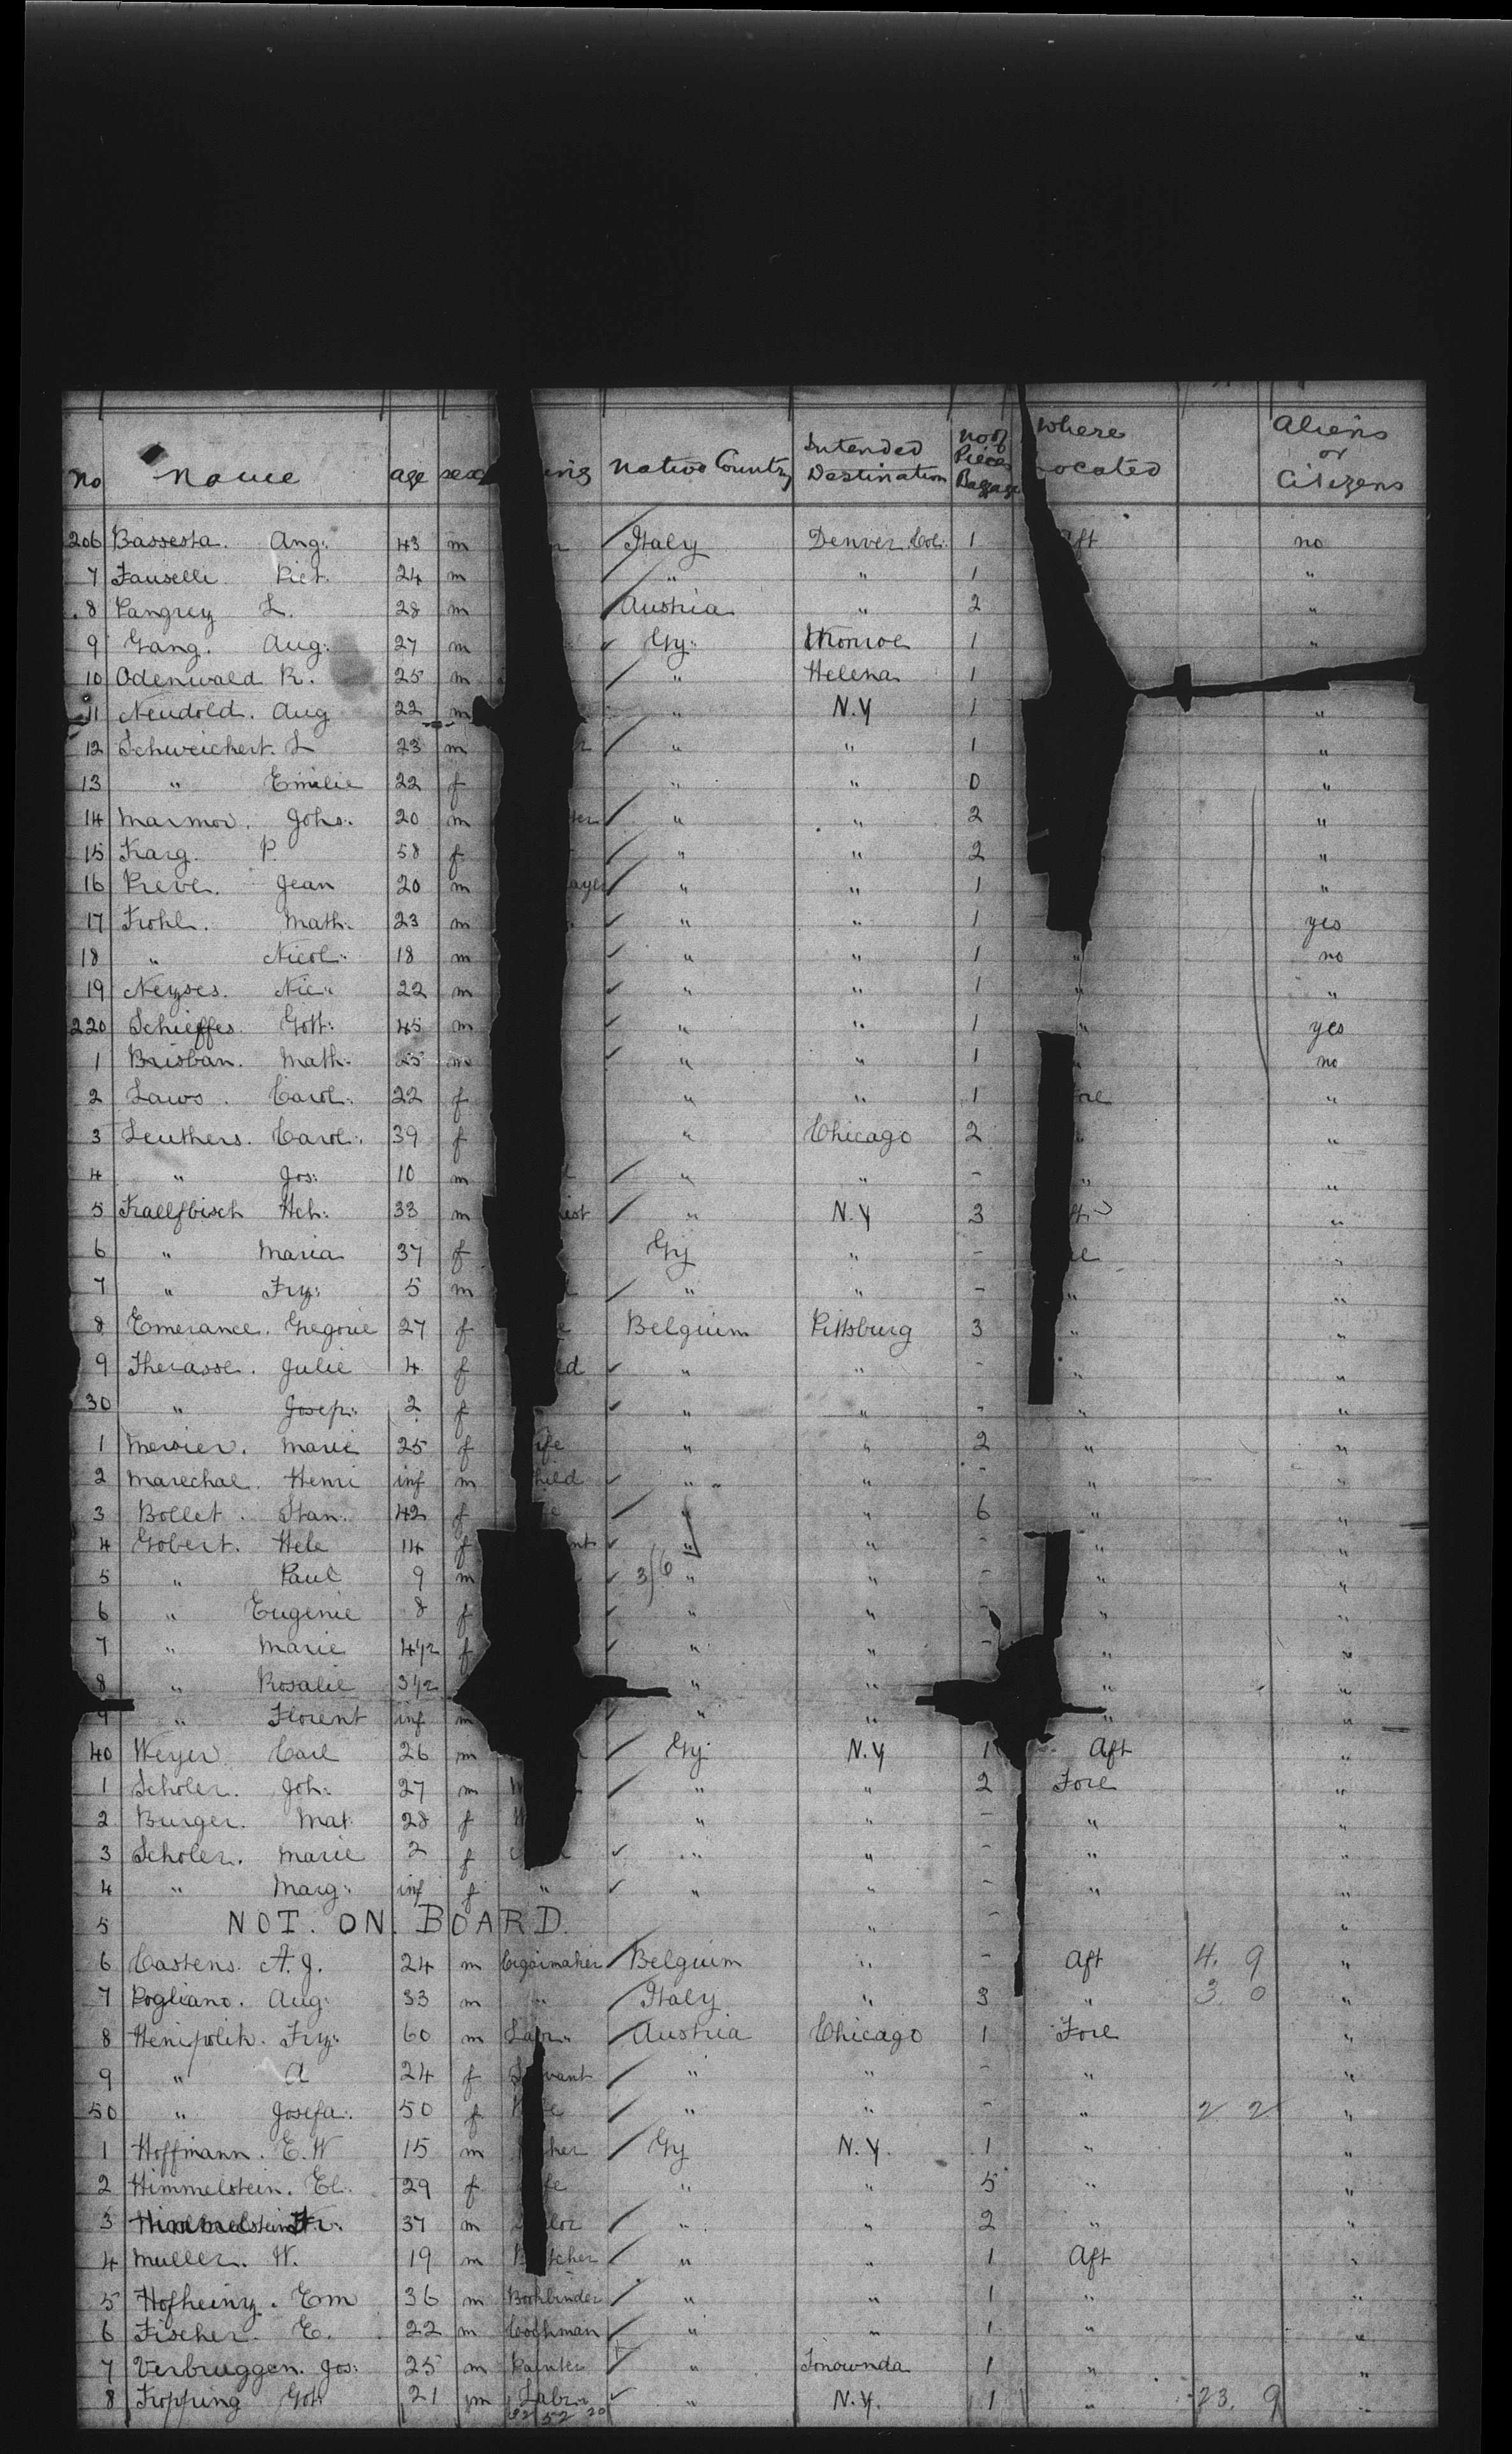 no name age sex ing Native Country Intended Destination no of Pieces Baggage where located aliens or Citizens
206 Bassesta. Ang: 43 m Italy Denver. Col: 1 Aft no
7 Fauselli. Piet. 24 m " " 1 "
8 Pangrey L. 28 m Austria " 2 "
9 Gang. Aug: 27 m Gy: Monroe 1 "
10 Odenwald R. 25 m " Helena 1
11 Neudold. Aug 22 m " N.Y 1 "
12 Schweichert. L 23 m " " 1 "
13 " Emilie 22 f " " 0 "
14 Marmor. Johs. 20 m " " 2 "
15 Karg. P. 58 f " " 2 "
16 Preve. Jean 20 m " " 1 "
17 Frohl. Math: 23 m " " 1 yes
18 " Nicol: 18 m " " 1 " no
19 Neyses. Nic: 22 m " " 1 " "
220 Schieffes. Gott: 45 m " " 1 " yes
1 Brisban. Math: 25 m " " 1 " no
2 Laws. Carol: 22 f " " 1 ore "
3 Leuthers. Carol: 39 f " Chicago 2 " "
4 " Jos: 10 m " " - " "
5 Kaelfbisch Hch: 33 m " N.Y 3 ft "
6 " Maria 37 f Gy " - "
7 " Frz: 5 m " " - " "
8 Emerance. Gregorie 27 f Belguim Pittsburg 3 " "
9 Therasse. Julie 4 f " " - " "
30 " Josep: 2 f " " - " "
1 Mersier. Marie 25 f ife " " 2 " "
2 Marechal. Henri inf m hild " " - " "
3 Bollet. Stan. 42 f " " 6 " "
4 Gobert. Hele 14 f nt " " - " "
5 " Paul 9 m 3/6 " " - " "
6 " Eugenie 8 f " " - " "
7 " Marie 4 1/2 f " " - " "
8 " Rosalie 3 1/2 " " " "
9 " Florent inf m " " " "
40 Weyer Carl 26 m Gy: N.Y 1 Aft "
1 Scholer. Joh: 27 m " " 2 Fore "
2 Burger. Mat 28 f W " " - " "
3 Scholer. Marie 2 f " " - " "
4 " Marg: inf f " " " - " "
5 NOT. ON. BOARD. " - "
6 Castens. A. J. 24 m Cigarmaker Belguim " - Aft 4. 9 "
7 Pogliano. Aug: 33 m " Italy " 3 " 3 0 "
8 Henipolik. Frz: 60 m Labr. Austria Chicago 1 Fore "
9 " A 24 f Servant " " - " "
50 " Josefa: 50 f " " - " 2 2 "
1 Hoffmann. E. W 15 m her Gy N.Y. 1 " "
2 Himmelstein. El. 29 f fe " " 5 " "
3 Himmelstein Fr: 37 m " " 2 " "
4 Muller. W. 19 m tcher " " 1 Aft "
5 Hofheinz. Em 36 m Bookbinder " " 1 " "
6 Fischer. E. 22 m Cochman " " 1 " "
7 Verbruggen. Jos: 25 m Painter " Tonownda 1 " "
8 Fropping Gott 21 m Labr. " N.Y. 1 " 23. 9 "